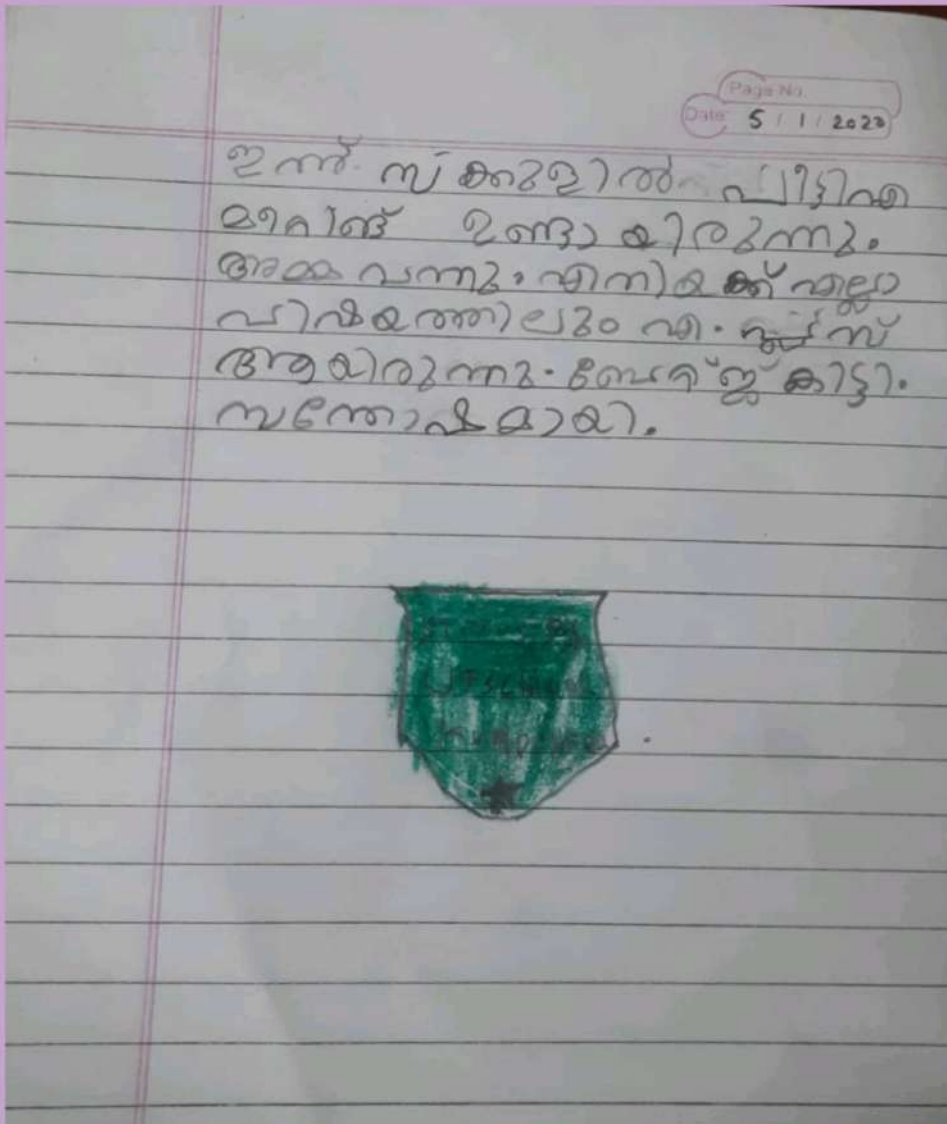 Page No.
Date: 5 / 1 / 2023
ഇന്ന് സ്ക്കൂളിൽ പിട്ടിഎ
മീറ്റിങ്ങ് ഉണ്ടായിരുന്നു.
അമ്മ വന്നു. എനിയക്ക് എല്ലാ
വിഷയത്തിലും എ. പ്ലസ്
ആയിരുന്നു. ബേഡ്ജ് കിട്ടി.
സന്തോഷമായി.